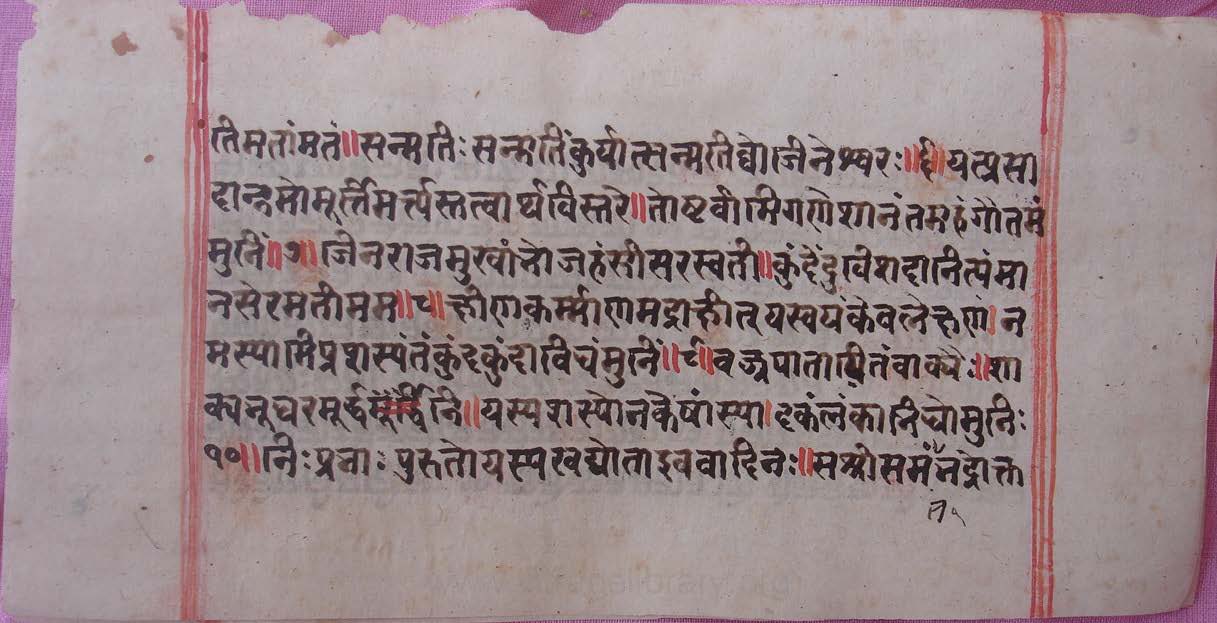 तिमतांमतं॥सन्मतिः सन्मतिंकुर्यात्सन्मतिर्योजिनेश्वरः॥६॥यत्प्रसा
दान्नमोमूर्त्तिमर्त्त्यस्तत्वार्थविस्तरे॥तोष्टवीमिगणेशानंतमहंगौतमं
मुनिं॥७॥जिनराजमुखांभोजहंसीसरस्वती॥कुंदेंदुविशदानित्यंमा
नसेरमतीमम॥८॥ह्रीणाकर्म्माणामद्राह्रीत्यस्वयंकेवलेह्रणा।न
मस्यामिप्रशस्यंतंकुंदकुंदाविधंमुनिं॥९॥वज्रपातायितंवाक्यैः॥शा
क्यनूधरमूर्द्धनि॥यस्यशस्योनकैषांस्या।दकलंकानिधोमुनिः
१०॥निःप्रवाः पुरुतोयस्यखद्योताइववादिनः॥सश्रीसमंनद्रोक्त